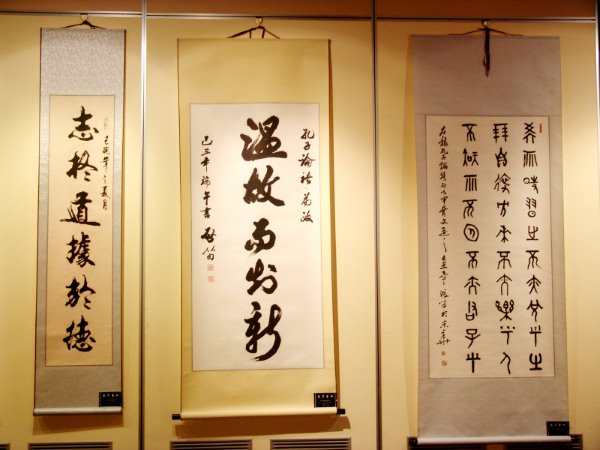 學而時習之不亦說乎有
朋自遠方來不亦樂乎人
不知而不慍不亦君子乎
孔子論語為政
溫故而知新
己丑年端午書
志於道據於德